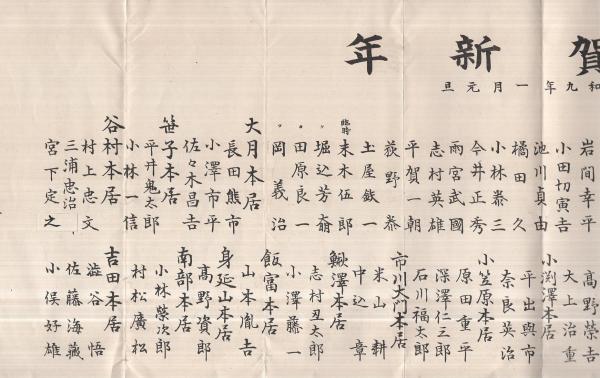 賀新年
和九年一月元旦
岩間幸平
小田切寅吉
池川貞由
橘田久
小林泰三
今井正秀
雨宮武國
志村英雄
平賀一朝
荻野恭
土屋鉄一
臨時 末木伍郎
〃 堀込芳斎
〃 田原良一
〃 岡義治
大月本居
長田熊市
小澤市平
佐々木昌吉
笹子本居
平井鬼太郎
小林一信
谷村本居
村上忠文
三浦忠治
宮下定之
高野榮吉
大上治重
小渕澤本居
平出與市
奈良英治
小笠原本居
原田重平
深澤仁三郎
石川福太郎
市川大門本居
米山耕
中込章
鰍澤本居
志村丑太郎
小澤藤一
飯富本居
山本胤吉
身延山本居
高野資郎
南部本居
小林榮次郎
村松廣松
吉田本居
澁谷悟
佐藤海蔵
小俣好雄